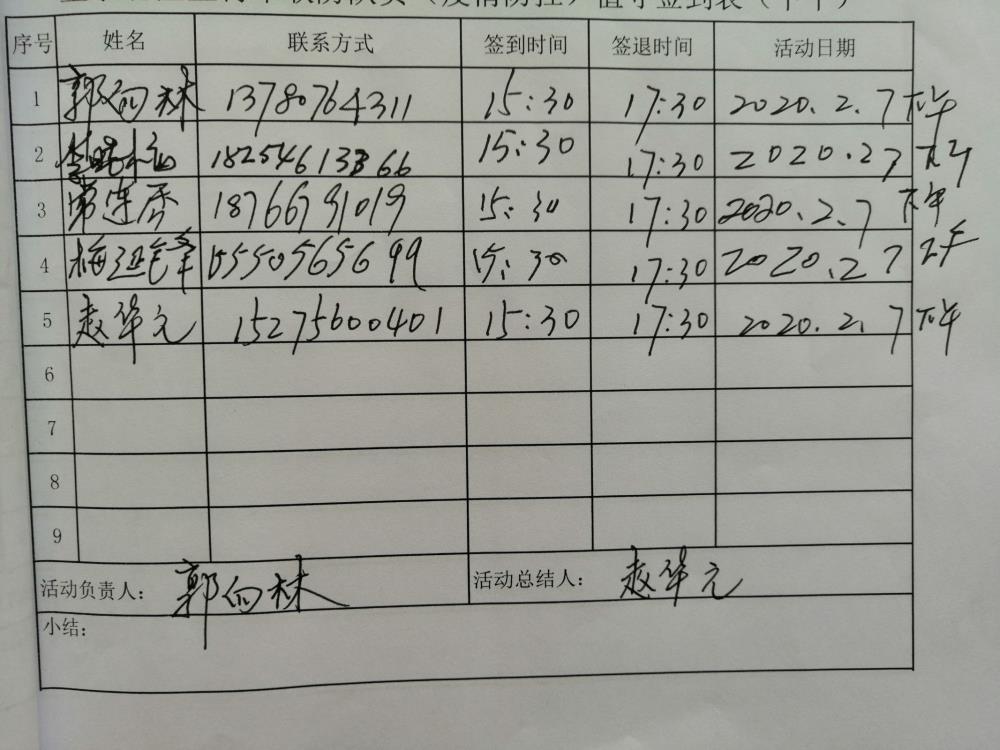 值守签到表（下午）
序号 姓名 联系方式 签到时间 签退时间 活动日期
1 郭向林 13780764311 15:30 17:30 2020.2.7 下午
2 18254613366 15:30 17:30 2020.2.7 下午
3 常连香 18766791019 15:30 17:30 2020.2.7 下午
4 15550565699 15:30 17:30 2020.2.7 下午
5 赵华元 15275600401 15:30 17:30 2020.2.7 下午
6
7
8
9
活动负责人： 郭向林 活动总结人： 赵华元
小结：